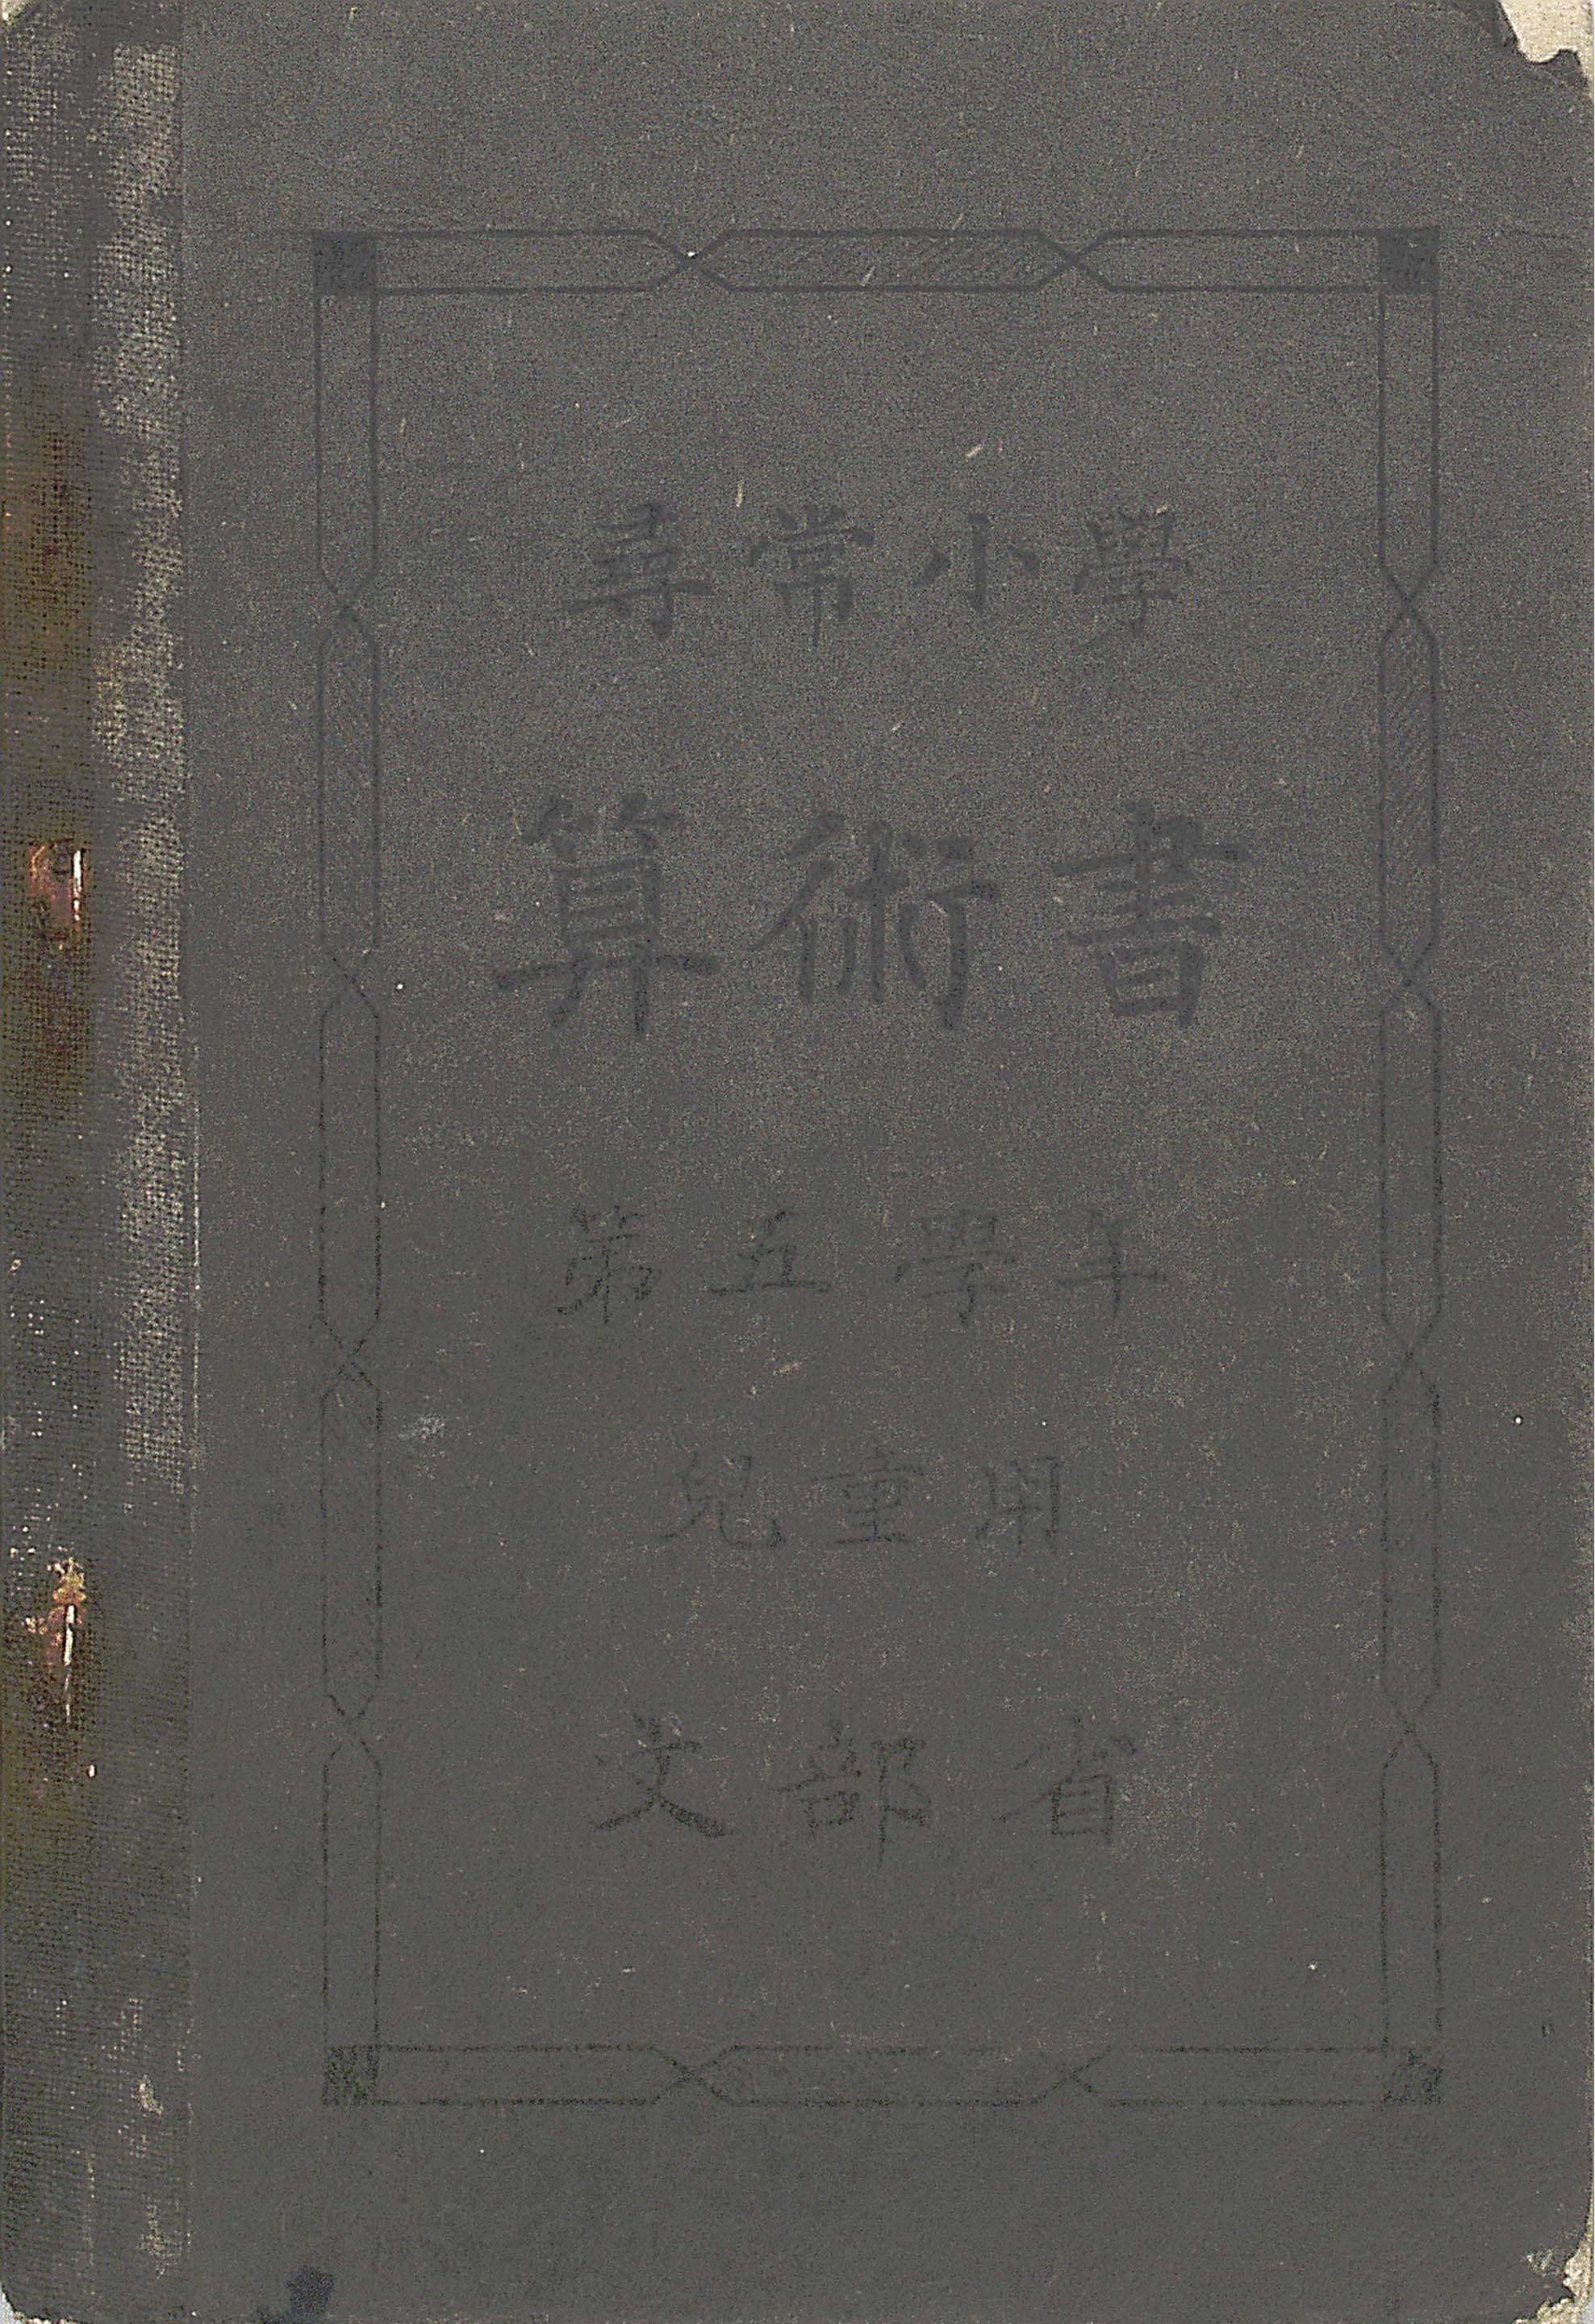 尋常小學
算術書
第五學年
兒童用
文部省